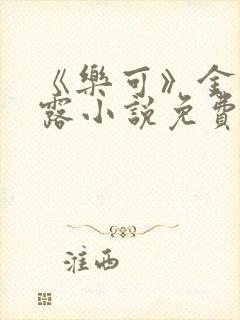 《樂可》金
露小說免費
淮西